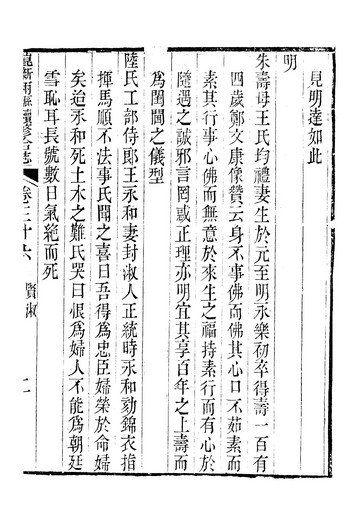 見明達如此
明
朱壽母王氏均禮妻生於元至明永樂初卒得壽一百有
四歲鄭文康像贊云身不事佛而佛其心口不茹素而
素其行事心佛而無意於來生之福持素行而有心於
隨遇之誠邪言罔或正理亦明宜其享百年之上壽而
為閨閫之儀型
陸氏工部侍郎王永和妻封淑人正統時永和劾錦衣指
揮馬順不法事氏聞之喜曰吾得為忠臣婦榮於命婦
矣迨永和死土木之難氏哭曰恨為婦人不能為朝廷
雪恥耳長號數日氣絶而死
崑新兩縣續修合志
卷三十六
賢淑
二